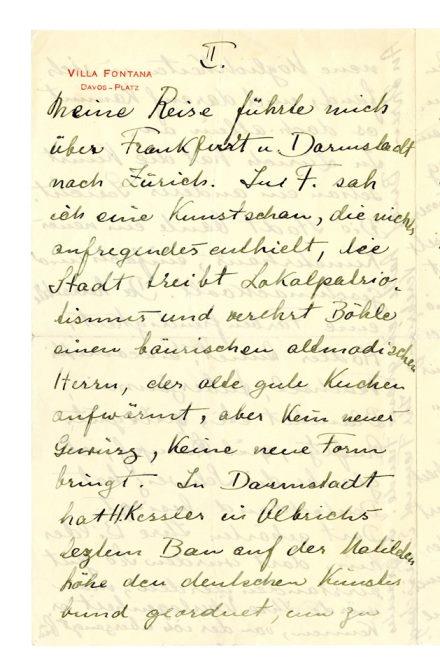 II.
VILLA FONTANA
DAVOS-PLATZ
Meine Reise führte mich
über Frankfurt u. Darmstadt
nach Zürich. In F. sah
ich eine Kunstschau, die nichts
aufregendes enthielt, die
Stadt treibt Lokalpatrio-
tismus und verehrt Böhle
einen bäurischen altmodischen
Herrn, der alte gute Kuchen
aufwärmt, aber kein neues
Gewürz, keine neue Form
bringt. In Darmstadt
hat H. Kessler in Olbrichs
letztem Bau auf der Matilden
höhe den deutschen Künstler
bund geordnet, um zu